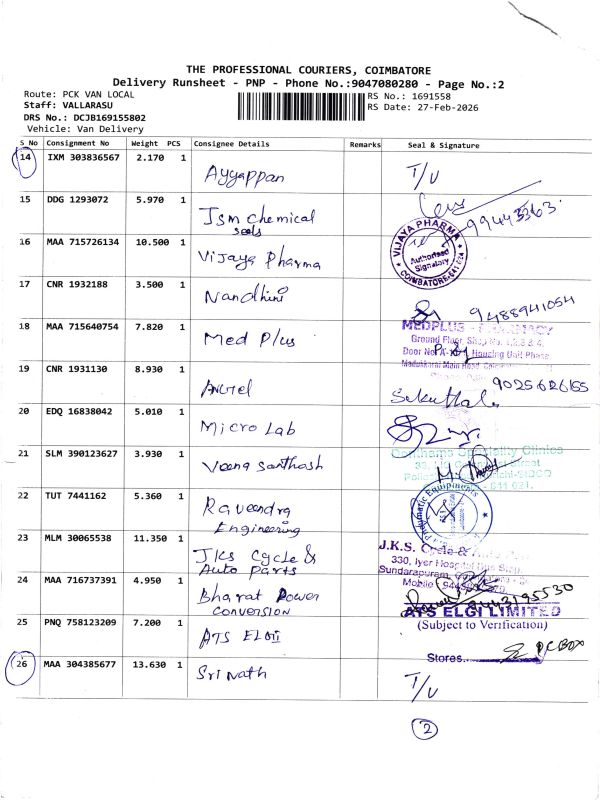 THE PROFESSIONAL COURIERS, COIMBATORE
Delivery Runsheet - PNP - Phone No.:9047080280 - Page No.:2
Route: PCK VAN LOCAL
Staff: VALLARASU
DRS No.: DCJB169155802
Vehicle: Van Delivery
RS No.: 1691558
RS Date: 27-Feb-2026
S No Consignment No Weight PCS Consignee Details Remarks Seal & Signature
14 IXM 303836567 2.170 1 Ayyappan T/U
15 DDG 1293072 5.970 1 Jsm chemical
seals
16 MAA 715726134 10.500 1 Vijaya Pharma VIJAYA PHARMA
Authorised
Signatory
17 CNR 1932188 3.500 1 Nandhini 9488941054
18 MAA 715640754 7.820 1 Med Plus MEDPLUS
Ground Floor, Shop No.
Housing Unit Phase
19 CNR 1931130 8.930 1 9025626155
20 EDQ 16838042 5.010 1 Micro Lab
21 SLM 390123627 3.930 1 Veena Santhosh Speciality Clinics
22 TUT 7441162 5.360 1 Raveendra
Engineering
23 MLM 30065538 11.350 1 JKS Cycle &
Auto Parts
J.K.S. Cycle &
330, Iyer Hospital Bus Stop,
Sundarapuram
Mobile
24 MAA 716737391 4.950 1 Bharat Power
CONVERSION
25 PNQ 758123209 7.200 1 ATS ELGI
ATS ELGI LIMITED
(Subject to Verification)
Stores
26 MAA 304385677 13.630 1 Sri Nath T/U
2